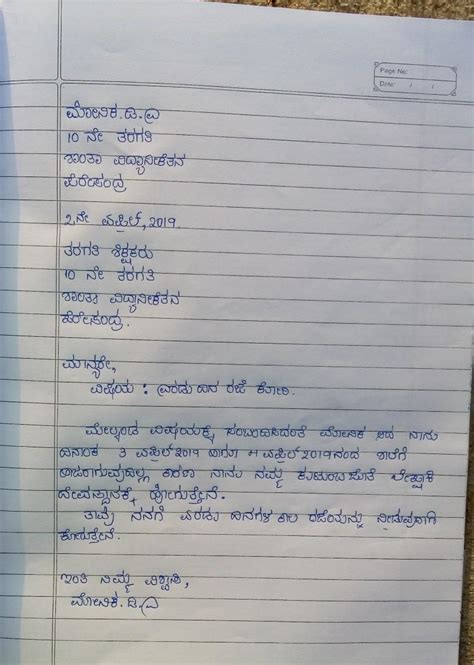 Page No:
Date: / /
ಮೋನಿಕ.ಡಿ.ವಿ
10 ನೇ ತರಗತಿ
ಶಾಂತಾ ವಿದ್ಯಾನಿಕೇತನ
ಪೆರೇಸಂದ್ರ
2ನೇ ಎಪ್ರಿಲ್, 2019.
ತರಗತಿ ಶಿಕ್ಷಕರು
10 ನೇ ತರಗತಿ
ಶಾಂತಾ ವಿದ್ಯಾನಿಕೇತನ
ಪೆರೇಸಂದ್ರ.
ಮಾನ್ಯರೇ,
ವಿಷಯ : ಎರಡು ದಿನ ರಜೆ ಕೋರಿ.
ಮೇಲ್ಕಂಡ ವಿಷಯಕ್ಕೆ ಸಂಬಂಧಿಸಿದಂತೆ ಮೋನಿಕ ಆದ ನಾನು
ದಿನಾಂಕ 3 ಎಪ್ರಿಲ್ 2019 ಹಾಗೂ 4 ಎಪ್ರಿಲ್ 2019ರಂದು ಶಾಲೆಗೆ
ಹಾಜರಾಗುವುದಿಲ್ಲ ಕಾರಣ ನಾನು ನಮ್ಮ ಕುಟುಂಬ ಜೊತೆ
ದೇವಸ್ಥಾನಕ್ಕೆ ಹೋಗುತ್ತೇನೆ.
ತಾವು ನನಗೆ ಎರಡು ದಿನಗಳ ಕಾಲ ರಜೆಯನ್ನು ನೀಡುವುದಾಗಿ
ಕೋರುತ್ತೇನೆ.
ಇಂತಿ ನಿಮ್ಮ ವಿಶ್ವಾಸಿ,
ಮೋನಿಕ.ಡಿ.ವಿ